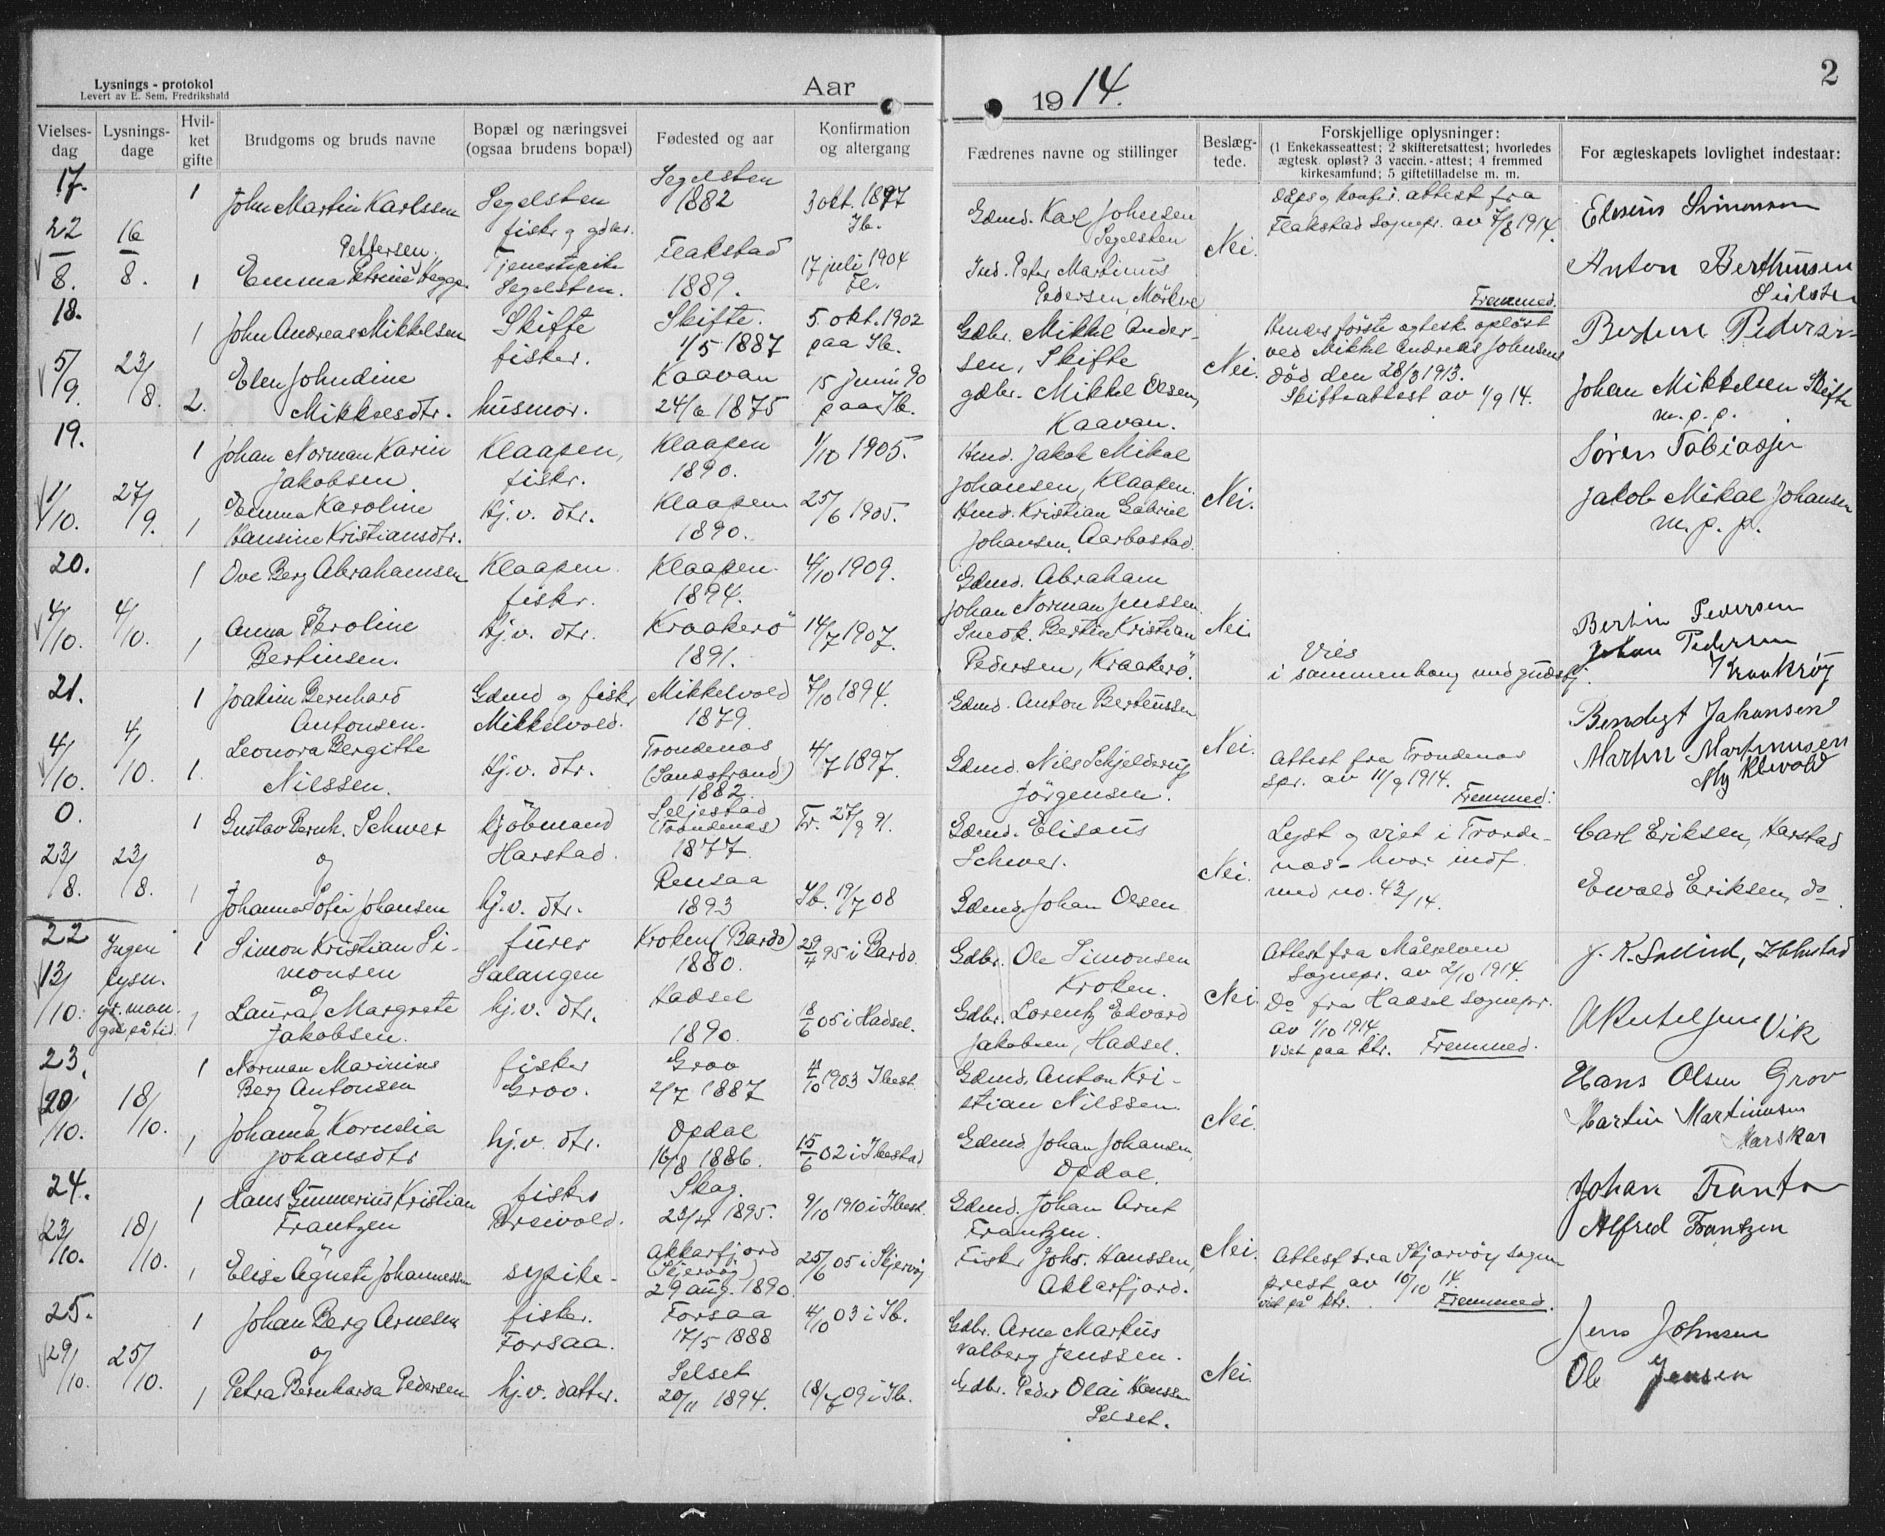 Lysnings - protokol
Levert av E. Sem, Fredrikshald
Aar
1914.
2
Vielses-dag
Lysnings-dage
Hvil-ket gifte
Brudgoms og bruds navne
Bopæl og næringsvei (ogsaa brudens bopæl)
Fødested og aar
Konfirmation og altergang
Fædrenes navne og stillinger
Beslæg-tede.
Forskjellige oplysninger:
(1 Enkekasseattest; 2 skifteretsattest; hvorledes
ægtesk. opløst? 3 vaccin.-attest; 4 fremmed
kirkesamfund; 5 giftetilladelse m. m.
For ægteskapets lovlighet indestaar:
17.
22/8.
16/8.
1
John Martin Karlssen
Segelsten
fisker og gdbr.
Segelsten
1882
3 okt. 1897
Ib.
Gdmd. Karl Johnsen
Segelsten
Nei.
Daaps og konfir. attest fra
Flakstad Sognepr. av 7/8 1914.
Fremmed.
1
Pettersen.
Emma Petrine Hegge
Tjenestepike
Segelsten.
Flakstad
1889.
17 juli 1904
Fl.
Ind. Peter Martinus
Pedersen, Mörkve
Anton Berthinsen
18.
5/9.
23/8.
1
John Andreas Mikkelsen
Skifte
fisker.
Skifte.
1/5 1887
5. okt. 1902
paa Ib.
Gdbr. Mikkel Ander-
sen, Skifte
Nei.
Hendes förste egtesk. oplöst
ved Mikkel Andreas Johnsens
död den 28/3 1913.
Skifteattest av 1/9 14.
2.
Elen Johndine
Mikkelsdtr.
husmor.
Kaavan
24/6 1875
15 juni 90
paa Ib.
gdbr. Mikkel Olsen,
Kaavan.
Johan Mikkelsen Skifte
m. p. p.
19.
1/10.
27/9.
1
Johan Norman Karin
Jakobsen
Klaapen,
fiskr.
Klaapen
1890.
1/10 1905.
Hmd. Jakob Mikal
Johansen, Klaapen.
Nei.
Sören Tobiasen
1
Emma Karoline
Hansine Kristiansdtr.
hj. v. dtr.
Klaapen
1890.
25/6 1905.
Hmd. Kristian Gabriel
Johansen, Aarbostad.
Jakob Mikal Johansen
m. p. p.
20.
4/10.
4/10.
1
Ove Berg Abrahamsen
Klaapen.
fiskr.
Klaapen.
1894.
4/10 1909.
Gdmd. Abraham
Johan Norman Jenssen.
Nei
1
og
Anna Peroline
Bertinsen.
hj. v. dtr.
Kraakerö
1891.
14/7 1907.
Smedk. Bertin Kristian
Pedersen, Kraakerö.
Vies
i sammenheng med gudstj.
Bertin Pedersen
Johan Pedersen
Kraakröy
21.
4/10.
4/10.
1
Joakim Bernhard
Antonsen.
Gdmd og fiskr
Mikkelvold.
Mikkelvold
1879.
7/10 1894.
Gdmd. Anton Berteussen
Nei.
Bendigt Johansen
1.
Leonora Bergitte
Nilssen.
hj. v. dtr.
Trondenæs
(Sandstrand)
1882.
4/7 1897.
Gdmd. Nils Schjelderup
Jörgensen.
Attest fra Trondenæs
spr. av 11/9 1914.
Fremmed.
Martin Martinussen
0.
23/8.
23/8.
1
Gustav Bernh. Schwer
og
kjöbmand
Harstad.
Seljestad
(Trondenæs)
1877.
Tr. 27/9 91.
Gdmd. Elisæus
Schwer.
Nei.
Lyst og viet i Tronde-
næs - hvor indf.
med no. 43/14.
Carl Eriksen, Harstad
1
Johanna Sofie Johansen
hj. v. dtr.
Rensaa
1893
Ib. 19/7 08
Gdmd. Johan Olsen
Ewald Eriksen, do
22
13/10.
Ingen
lysn.
gr. man-
gel på tid.
1
Simon Kristian Si-
monsen
furer
Salangen
Kroken (Bardo)
1880.
29/4 95 i Bardo.
Gdbr. Ole Simonsen
Kroken.
Nei.
Attest fra Målselven
Sognepr. av 2/10 1914.
1
og
Laura Margrete
Jakobsen.
hj. v. dtr.
Hadsel
1890.
18/6 05 i Hadsel.
Gdbr. Lorentz Edvard
Jakobsen, Hadsel.
Do fra Hadsel sognepr.
av 1/10 1914
Viet paa ktr. Fremmed.
Vik
23.
20/10.
18/10.
1
Norman Marinius
Berg Antonsen
og
fisker
Grov.
Grov
2/7 1887
4/10 1903 Ibest.
Gdmd. Anton Kri-
stian Nilssen.
Nei.
Hans Olsen Grov
1
Johanna Kornelia
Johansdtr
hj. v. dtr.
Opdal
16/8 1886.
15/6 02 i Ibestad
Gdmd. Johan Johansen,
Opdal.
Martin Martinussen
Marskar
24.
23/10.
18/10.
1
Hans Gunnerius Kristian
Frantzen
og
fisker
Breivold.
Skog.
23/4 1895.
9/10 1910 i Ibest.
Gdmd. Johan Arnt
Frantzen.
Nei.
Johan Frantz
Alfred Frantzen
1
Elise Agnete Johannessen
sypike
Akkarfjord
(Skjervöy)
29 aug. 1890.
25/6 05 i Skjervöy
Fisker Johs. Hanssen,
Akkarfjord.
Attest fra Skjærvöy sogne
prest av 10/10 14.
viet på ktr. Fremmed.
25.
29/10.
25/10.
1
Johan Berg Arnesen
og
fisker.
Forsaa.
Forsaa
17/5 1888
4/10 03 i Ib.
Gdbr. Arne Markus
Valberg Jenssen.
Nei.
Jens Johnsen
1
Petra Bernharda Pedersen
hj. v. datter.
Selset
20/11 1894.
18/7 09 i Ib.
Gdbr. Peder Olai Hanssen
Selset.
Ole Jensen